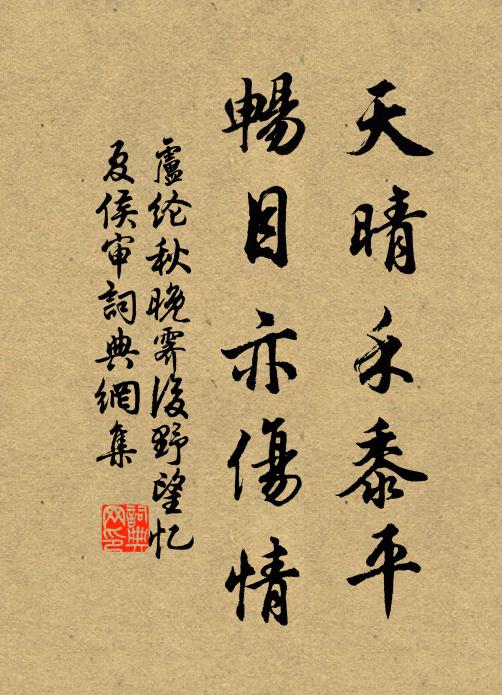 天晴禾黍平
暢目亦傷情
盧纶秋晚霽後野望忆
夏侯审詞典網集
詞典
网印